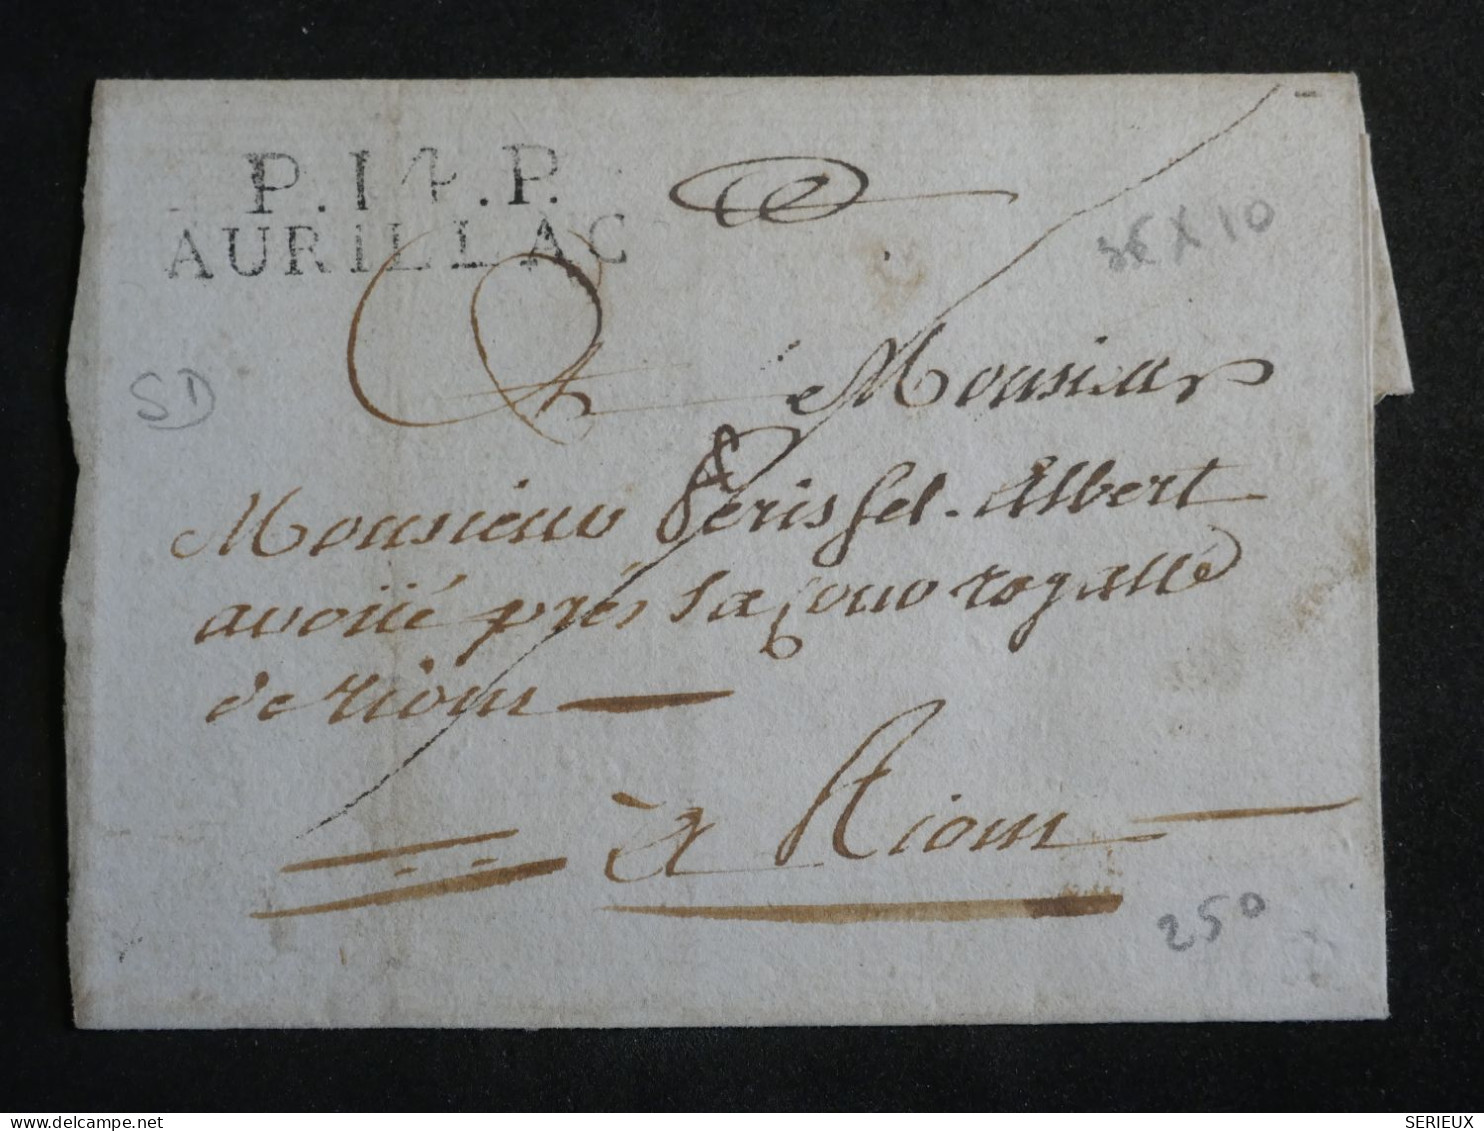 P.14.P.
AURILLAC
36 X 10
SD
Monsieur
Monsieur Perissel-Albert
avoüé près la Cour royalle
de riom
à Riom
250
SERIEUX - DELCAMPE.NET